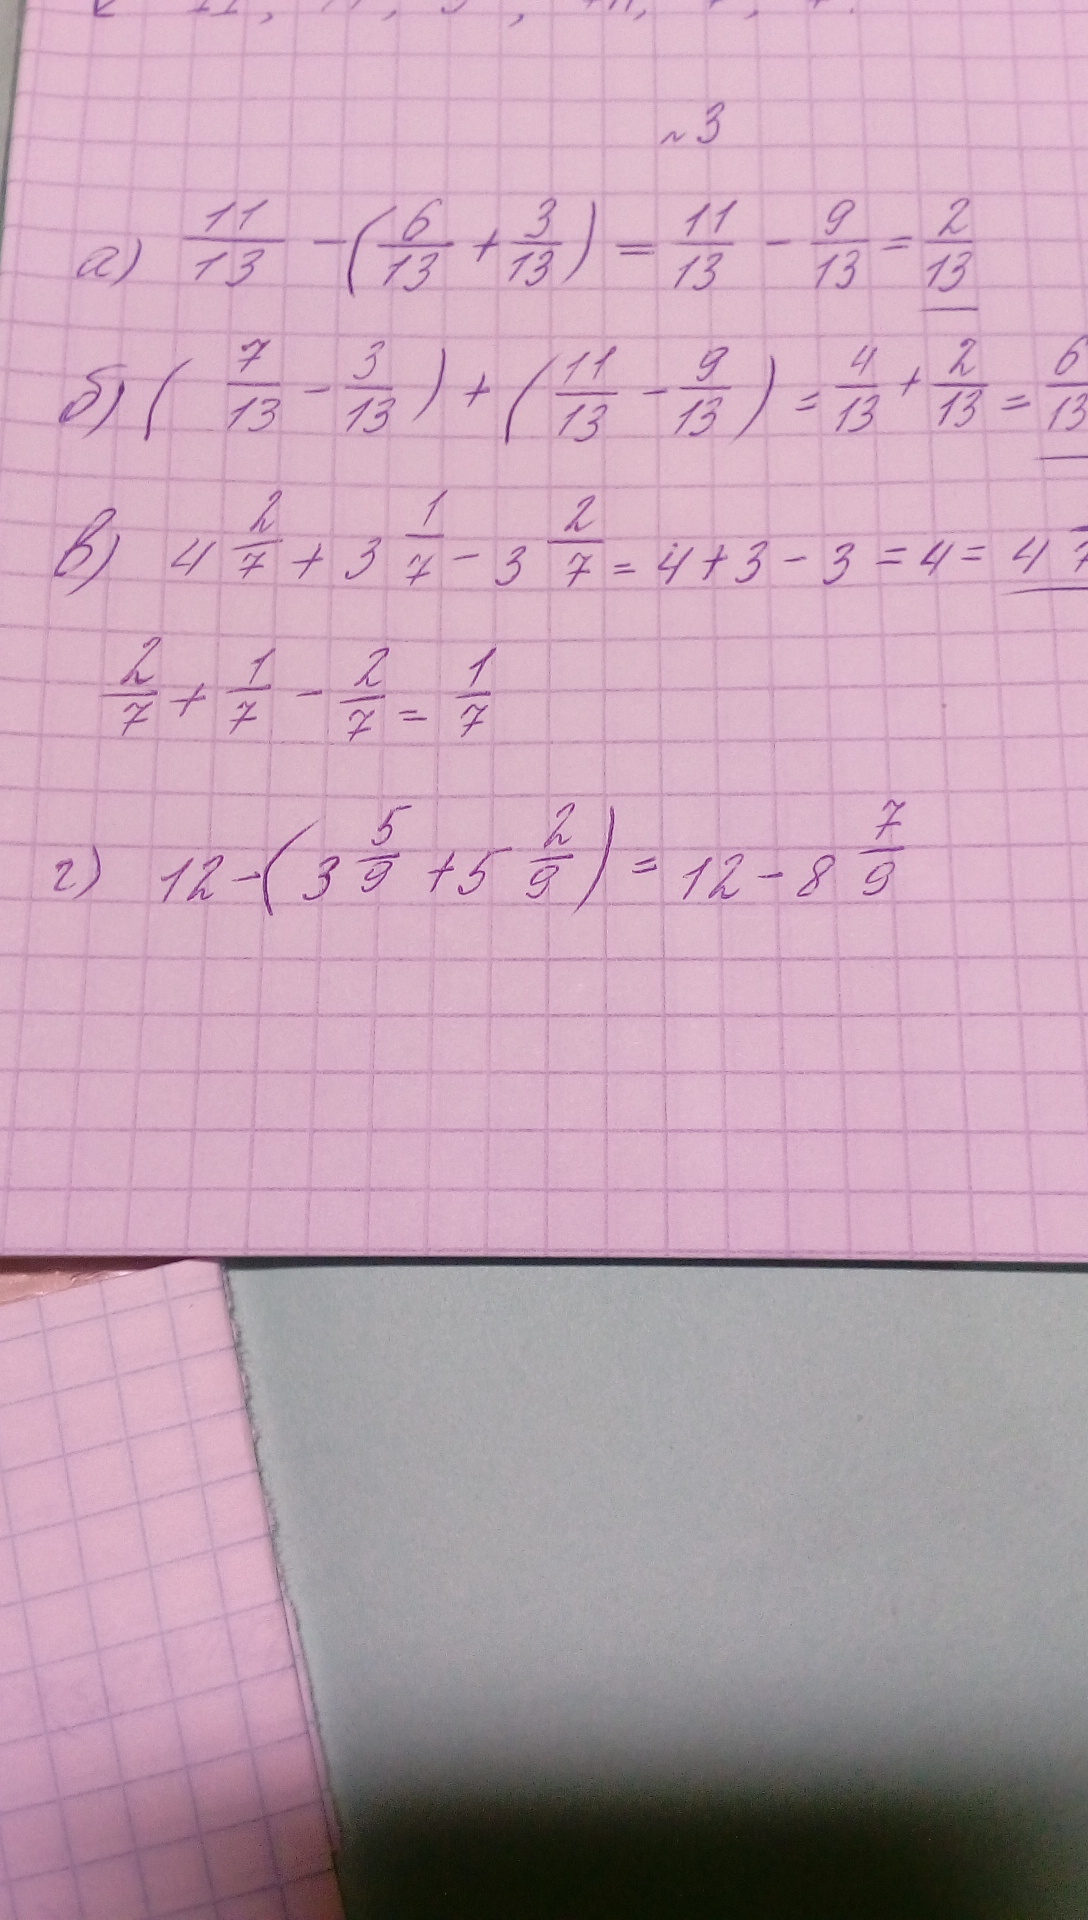 ~ 3
а) 11/13 - (6/13 + 3/13) = 11/13 - 9/13 = 2/13
б) (7/13 - 3/13) + (11/13 - 9/13) = 4/13 + 2/13 = 6/13
в) 4 2/7 + 3 1/7 - 3 2/7 = 4 + 3 - 3 = 4 = 4
2/7 + 1/7 - 2/7 = 1/7
г) 12 - (3 5/9 + 5 2/9) = 12 - 8 7/9